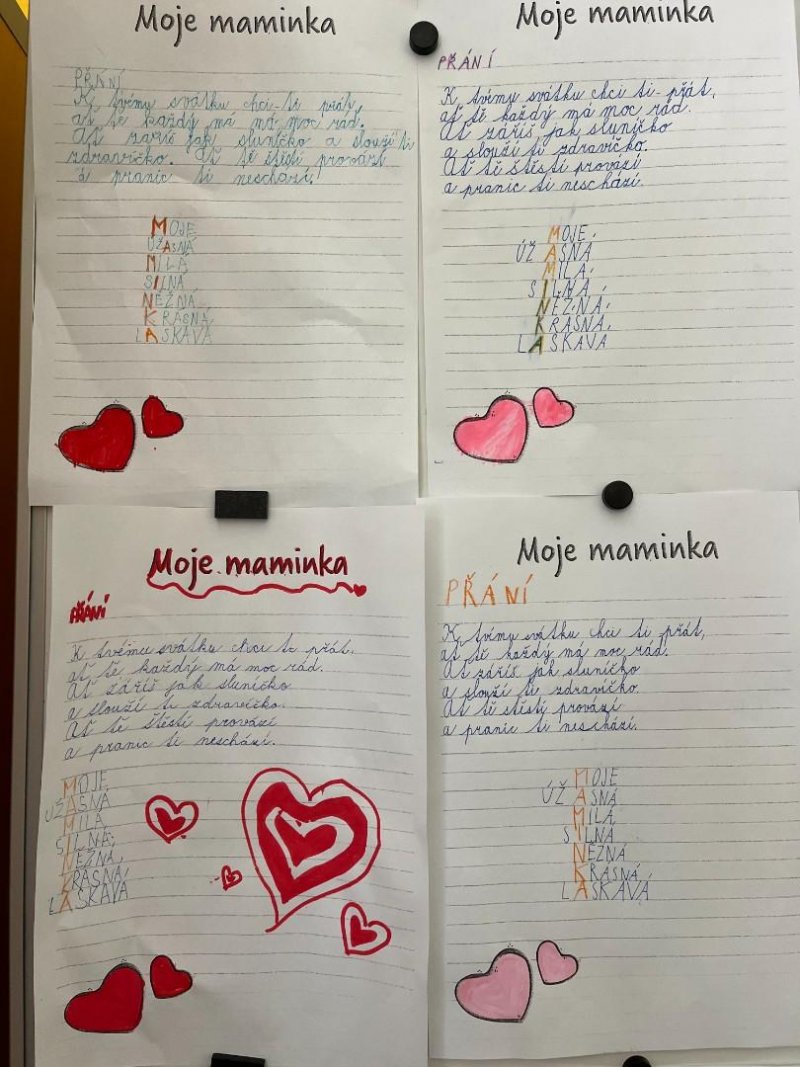 Moje maminka
PŘÁNÍ
K tvému svátku chci ti přát,
ať tě každý má má moc rád.
Ať záříš jak sluníčko a slouží ti
zdravíčko. Ať tě štěstí provází
a pranic ti neschází.
MOJE
ÚŽASNÁ
MILÁ
SILNÁ
NĚŽNÁ
KRÁSNÁ
LASKAVÁ
Moje maminka
PŘÁNÍ
K tvému svátku chci ti přát,
ať tě každý má moc rád.
Ať záříš jak sluníčko
a slouží ti zdravíčko.
Ať tě štěstí provází
a pranic ti neschází.
MOJE,
ÚŽASNÁ
MILÁ,
SILNÁ,
NĚŽNÁ,
KRÁSNÁ,
LASKAVÁ
Moje maminka
PŘÁNÍ
K tvému svátku chci ti přát,
ať tě každý má moc rád.
Ať záříš jak sluníčko
a slouží ti zdravíčko.
Ať tě štěstí provází
a pranic ti neschází.
MOJE
ÚŽASNÁ
MILÁ
SILNÁ,
NĚŽNÁ,
KRÁSNÁ,
LASKAVÁ
Moje maminka
PŘÁNÍ
K tvému svátku chci ti přát,
ať tě každý má moc rád.
Ať záříš jak sluníčko
a slouží ti zdravíčko.
Ať tě štěstí provází
a pranic ti neschází.
MOJE
ÚŽASNÁ
MILÁ
SILNÁ
NĚŽNÁ
KRÁSNÁ,
LASKAVÁ